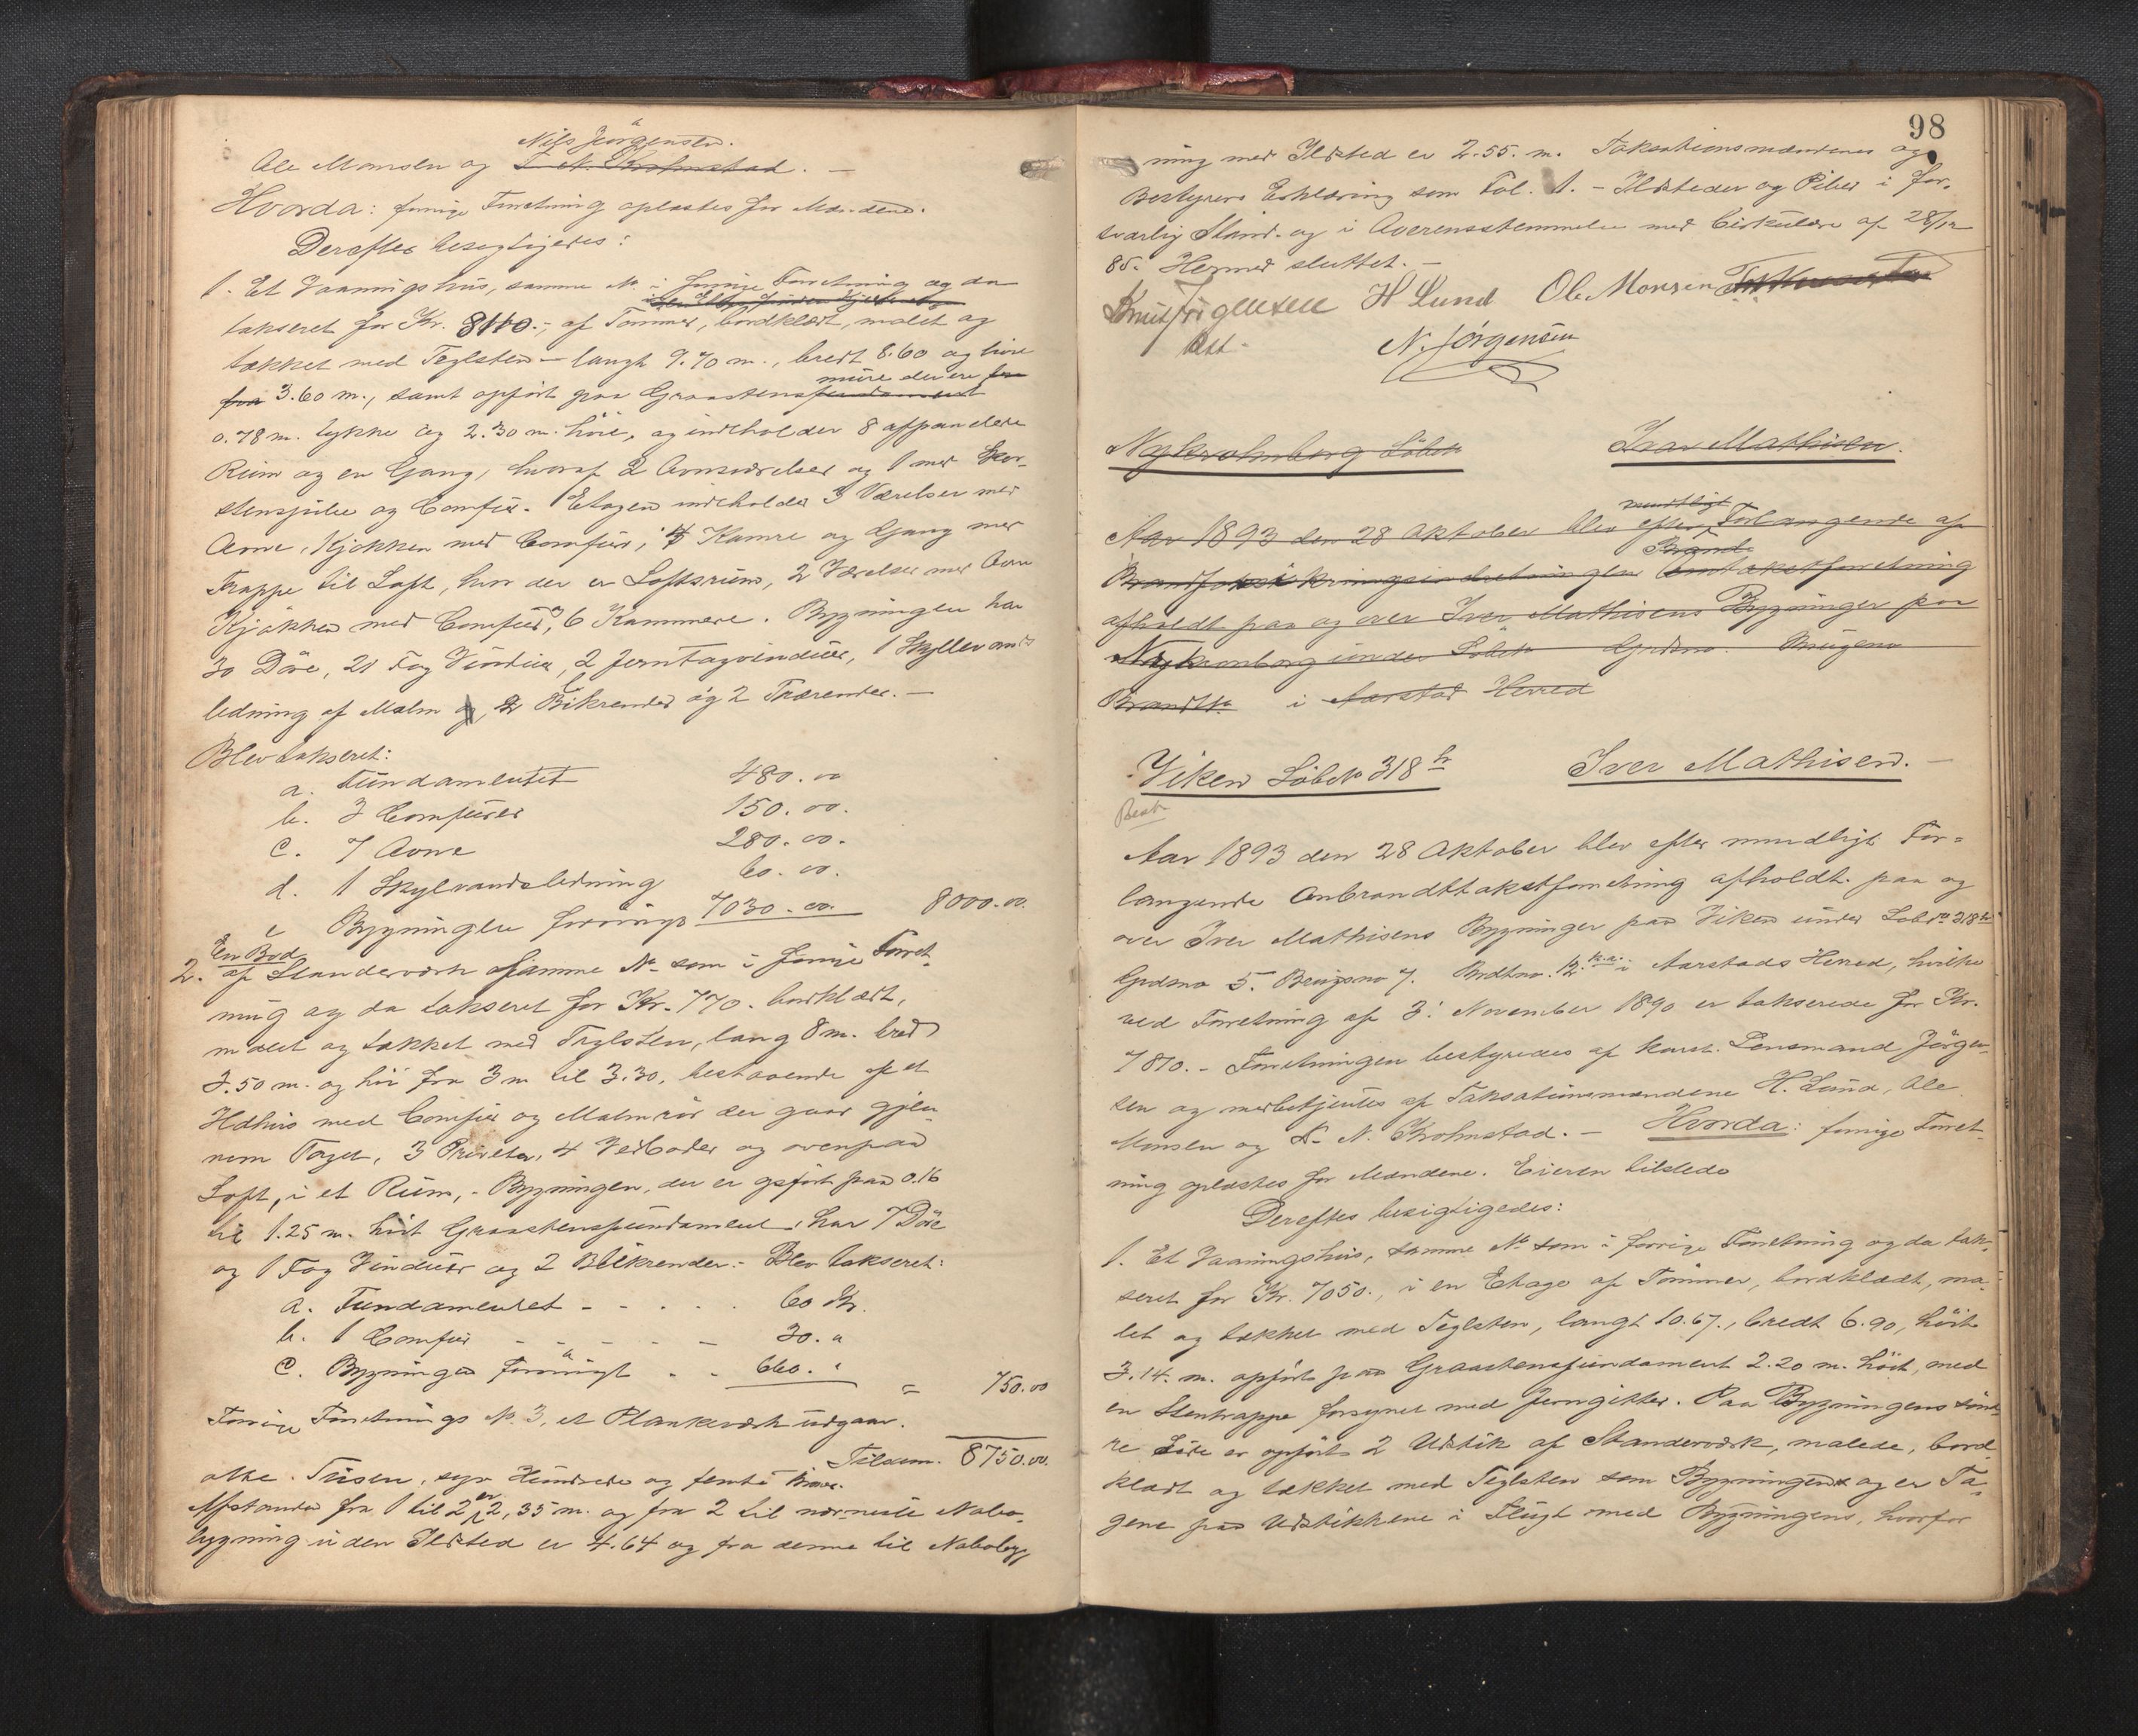 Nils Jörgensen.
Ole Monsen og T. N. Krohnstad. —
Hvorda: forrige Forretning oplæstes for Mændene.
Derefter besigtigedes:
1. Et Vaaningshus, samme No i forrige Forretning og da
takseret for Kr. 8110.-, af Tømmer, bordklædt, malet og
tækket med Teglsten – langt 9.70 m., bredt 8.60 og höit
mure der ere
fra 3.60 m., samt opført paa Graastensfundament
0.78 m. tykke og 2.30 m. höie, og indeholder 8 afpanelede
Rum og en Gang, hvoraf 2 Ovnsværelser og 1 med Skor-
stenspibe og Comfur. Etagen indeholder 3 Værelser med
Ovne, Kjøkken med Comfur, 4 Kamre og Gang med
Trappe til Loft, hvor der er Loftsrum, 2 Værelser med Ovn
Kjøkken med Comfur, 6 Kammere. Bygningen har
30 Döre, 21 Fag Vinduer, 2 Jerntagvinduer, 1 Skyllevands
ledning af Malm og 2 Blikrender og 2 Trærender. —
Blev takseret:
a. Fundamentet 480.00
b. 3 Comfurer 150.00.
c. 7 Ovne 280.00.
d. 1 Skylvandsledning 60.00.
e Bygningen forøvrigt 7030.00. 8000.00.
En Bod
2. af Standerværk samme No som i forrige Forret-
ning og da takseret for Kr. 770. bordklædt,
malet og tækket med Teglsten, lang 8 m. bred
3.50 m. og höi fra 3 m til 3.30, bestaaende af et
Ildhus med Comfur og Malmrör der gaar gjen-
nem Taget, 3 Priveter, 4 Vedboder og ovenpaa
Loft, i et Rum, - Bygningen, der er opført paa 0.16
til 1.25 m. höit Graastensfundament, har 7 Döre
og 1 Fag Vinduer og 2 Blikrender. - Blev takseret:
a. Fundamentet - - . . . 60 Kr.
b. 1 Comfur - - - - - 30. "
c. Bygningen forøvrigt . . 660. "
= 750.00
Forrige Forretnings No. 3, et Plankeværk udgaar.
Tilsam. 8750.00.
otte Tusen, syv Hundrede og femti Kroner.
Afstanden fra 1 til 2 er 2,35 m. og fra 2 til nærmeste Nabo-
bygning uden Ildsted er 4.64 og fra denne til Nabobyg-
98
ning med Ildsted er 2.55. m. Taksationsmændenes og
Bestyrers Erklæring som Fol. 1. - Ildsteder og Piber i for-
svarlig Stand. og i Overensstemmelse med Cirkulære af 28/12
85. Hermed sluttet. —
Knut Jørgensen H Lund Ole Monsen
best. N. Jörgensen
Nykrohnborg Löbeno Ivar Mathisen.
mundtligt
Aar 1893 den 28 Oktober blev efter Forlangende af
Brand
Brandforsikringsindretningen Omtakstforretning
afholdt paa og over Iver Mathisens Bygninger paa
Nykronborg under Löbeno Gardsno. Brugsno
Brandtko i Aarstad Herred
Viken Löbeno 318 Iver Mathisen. —
Best
Aar 1893 den 28 Oktober blev efter mundligt For-
langende Ombrandtakstforretning afholdt paa og
over Iver Mathisens Bygninger paa Viken under Lobno 318
Gardsno 5. Brugsno 7. Brdtno. 12. i Aarstads Herred, hvilke
ved Forretning af 3. November 1890 er takserede for Kr.
7810. - Forretningen bestyredes af konst. Lensmand Jörgen-
sen og medbetjentes af Taksationsmændene H. Lund, Ole
Monsen og T. N. Krohnstad. — Hvorda: forrige Forret-
ning oplæstes for Mændene. Eieren tilstede
Derefter besigtigedes:
1. Et Vaaningshus, samme No som i forrige Forretning og da tak-
seret for Kr. 7050., i en Etage af Tømmer, bordklædt, ma-
let og tækket med Teglsten, langt 10.67., bredt 6.90, höit
3.14. m. opført paa Graastensfundament 2.20 m. höit, med
en Stentrappe forsynet med Jerngitter. Paa Bygningens önd-
re Side er opført 2 Udstik af Standerværk, malede, bord
klædt og tækket med Teglsten som Bygningen og er Ta-
gene paa Udstikkene i Flugt med Bygningens, hvorfor